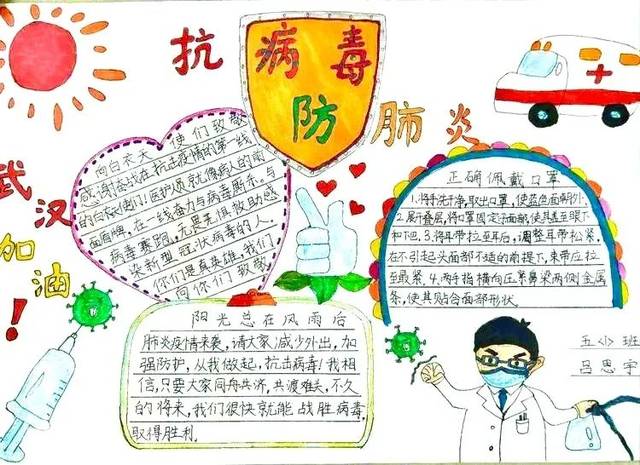 抗病毒
防肺炎
武汉加油！
向白衣天使们致敬
感谢奋战在抗击疫情的第一线
的白衣使们！医护人员就像病人的雨
面盾牌，在一线奋力与病毒展乐。与
病毒赛跑，无畏无惧，救助感
染新型冠状病毒的人。
你们是真英雄，我们
向你们致敬
正确佩戴口罩
1.将手洗干净，取出口罩，使蓝色面朝外。
2.展开叠层，将口罩固定于面部，使其盖至眼下
和下巴。3.将耳带拉至耳后，调整耳带松紧，
在不引起头面部不适的前提下，束带应拉
至最紧。4.两手指横向压紧鼻梁两侧金属
条，使其贴合面部形状。
阳光总在风雨后
肺炎疫情来袭，请大家减少外出，加
强防护，从我做起，抗击病毒！我相
信，只要大家同舟共济，共渡难关，不久
的将来，我们很快就能战胜病毒
取得胜利。
五〈1〉班
吕思宇